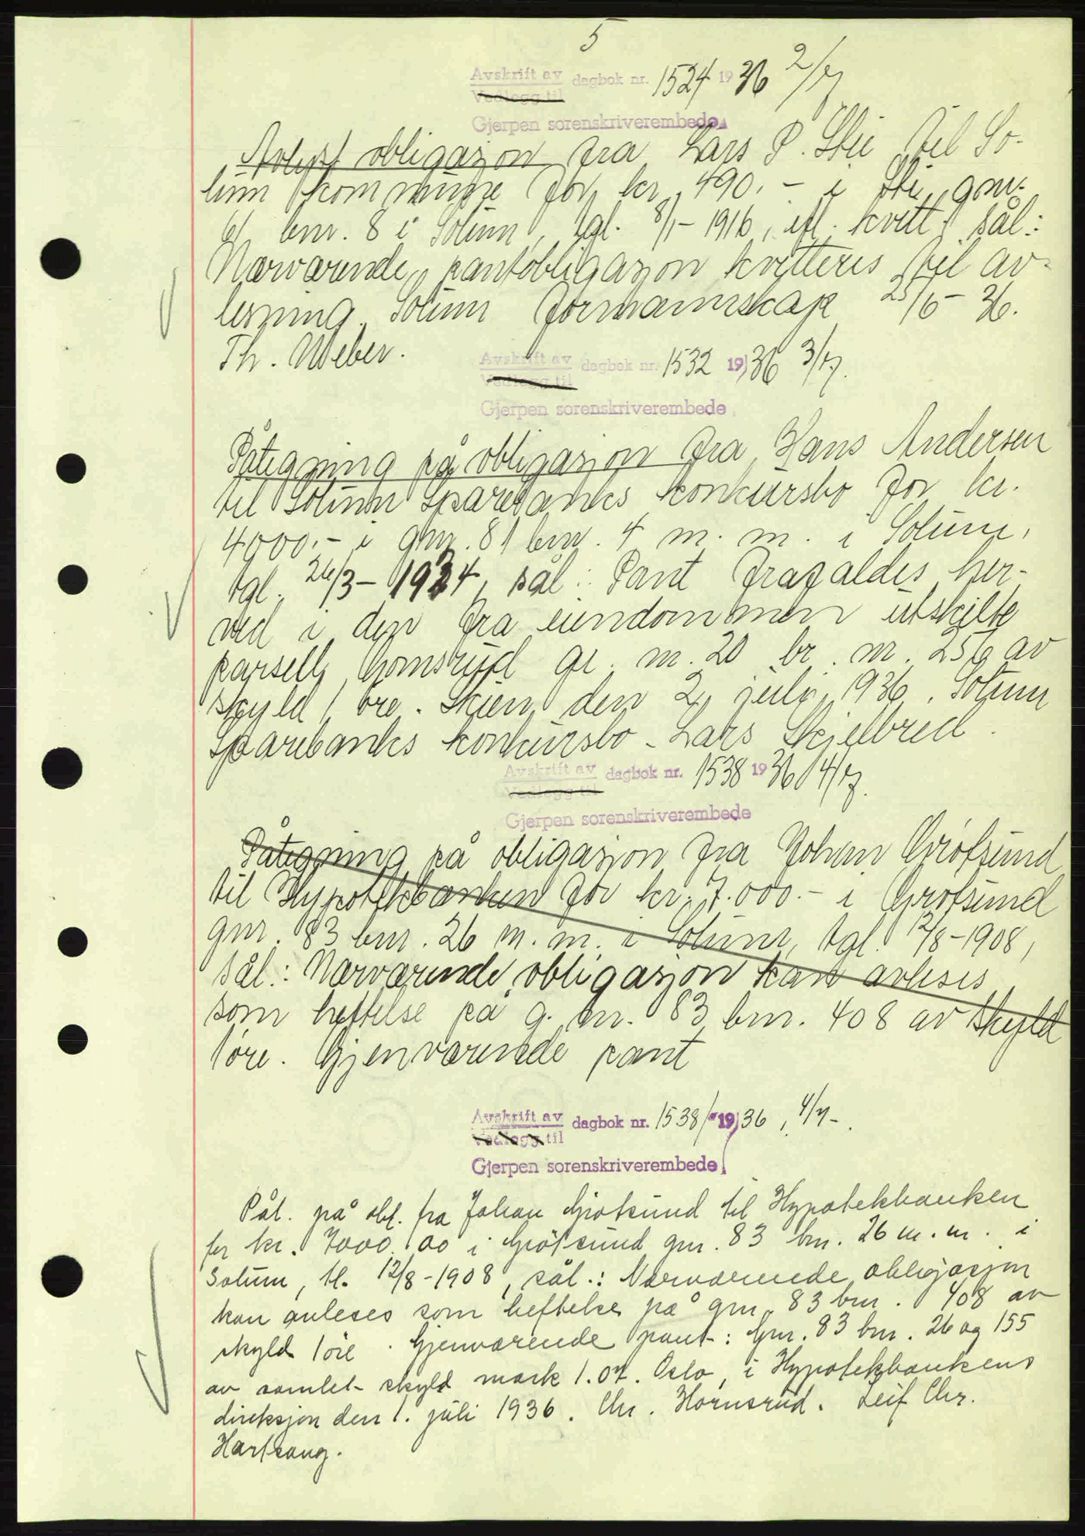 5
Avskrift av dagbok nr. 1524 19 36 2/7
Vedlegg til
Gjerpen sorenskriverembede
Avlyst obligasjon fra Lars P. Stie til So-
lum kommune for kr. 490.- i Stie gnr.
61 bnr. 8 i Solum, tgl. 8/1-1916, ifl. kvitt. sål.:
Nærværende pantobligasjon kvitteres til av-
lesning. Solum formannskap 25/6-36.
Th. Weber.
Avskrift av dagbok nr. 1532 19 36 3/7.
Vedlegg til
Gjerpen sorenskriverembede
Påtegning på obligasjon fra Hans Andersen
til Solum Sparebanks konkursbo for kr.
4000.- i gnr. 81 bnr. 4 m. m. i Solum,
tgl. 26/3-1924, sål.: Pant frafaldes her-
ved i den fra eiendommen utskilte
parsell Homsryd gr. nr. 20 br. nr. 259 av
skyld 1 øre. Skien den 2 juli 1936. Solum
Sparebanks konkursbo - Lars Skjelbred.
Avskrift av dagbok nr. 1538 19 36 4/7.
Vedlegg til
Gjerpen sorenskriverembede
Påtegning på obligasjon fra Johan Grøtsund
til Hypotekbanken for kr. 7.000.- i Grøtsund
gnr. 83 bnr. 26 m. m. i Solum, tgl. 12/8-1908,
sål.: Nærværende obligasjon kan avleses
som heftelse på g. nr. 83 bnr. 408 av skyld
1 øre. Gjenværende pant
Avskrift av dagbok nr. 1538 19 36, 4/7-.
Vedlegg til
Gjerpen sorenskriverembede
Påt. på obl. fra Johan Grøtsund til Hypotekbanken
for kr. 7000.00 i Grøtsund gnr. 83 bnr. 26 m. m. i
Solum, tl. 12/8-1908, sål.: Nærværende obligasjon
kan avleses som heftelse på gnr. 83 bnr. 408 av
skyld 1 øre. Gjenværende pant: Gnr. 83 bnr. 26 og 155
av samlet skyld mark 1.07. Oslo, i Hypotekbankens
direksjon den 1. juli 1936. Chr. Hornsrud. Leif Chr.
Hartsang.